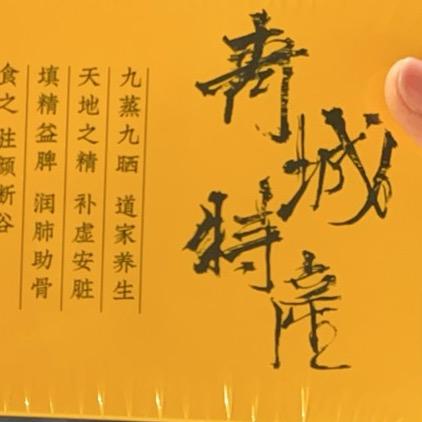 青城特產
九蒸九晒 道家养生
天地之精 补虚安脏
填精益脾 润肺助骨
食之 驻颜断谷